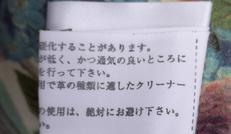 硬化することがあります。
が低く、かつ通気の良いところに
を行って下さい。
用で革の種類に適したクリーナー
の使用は、絶対にお避け下さい。
い。